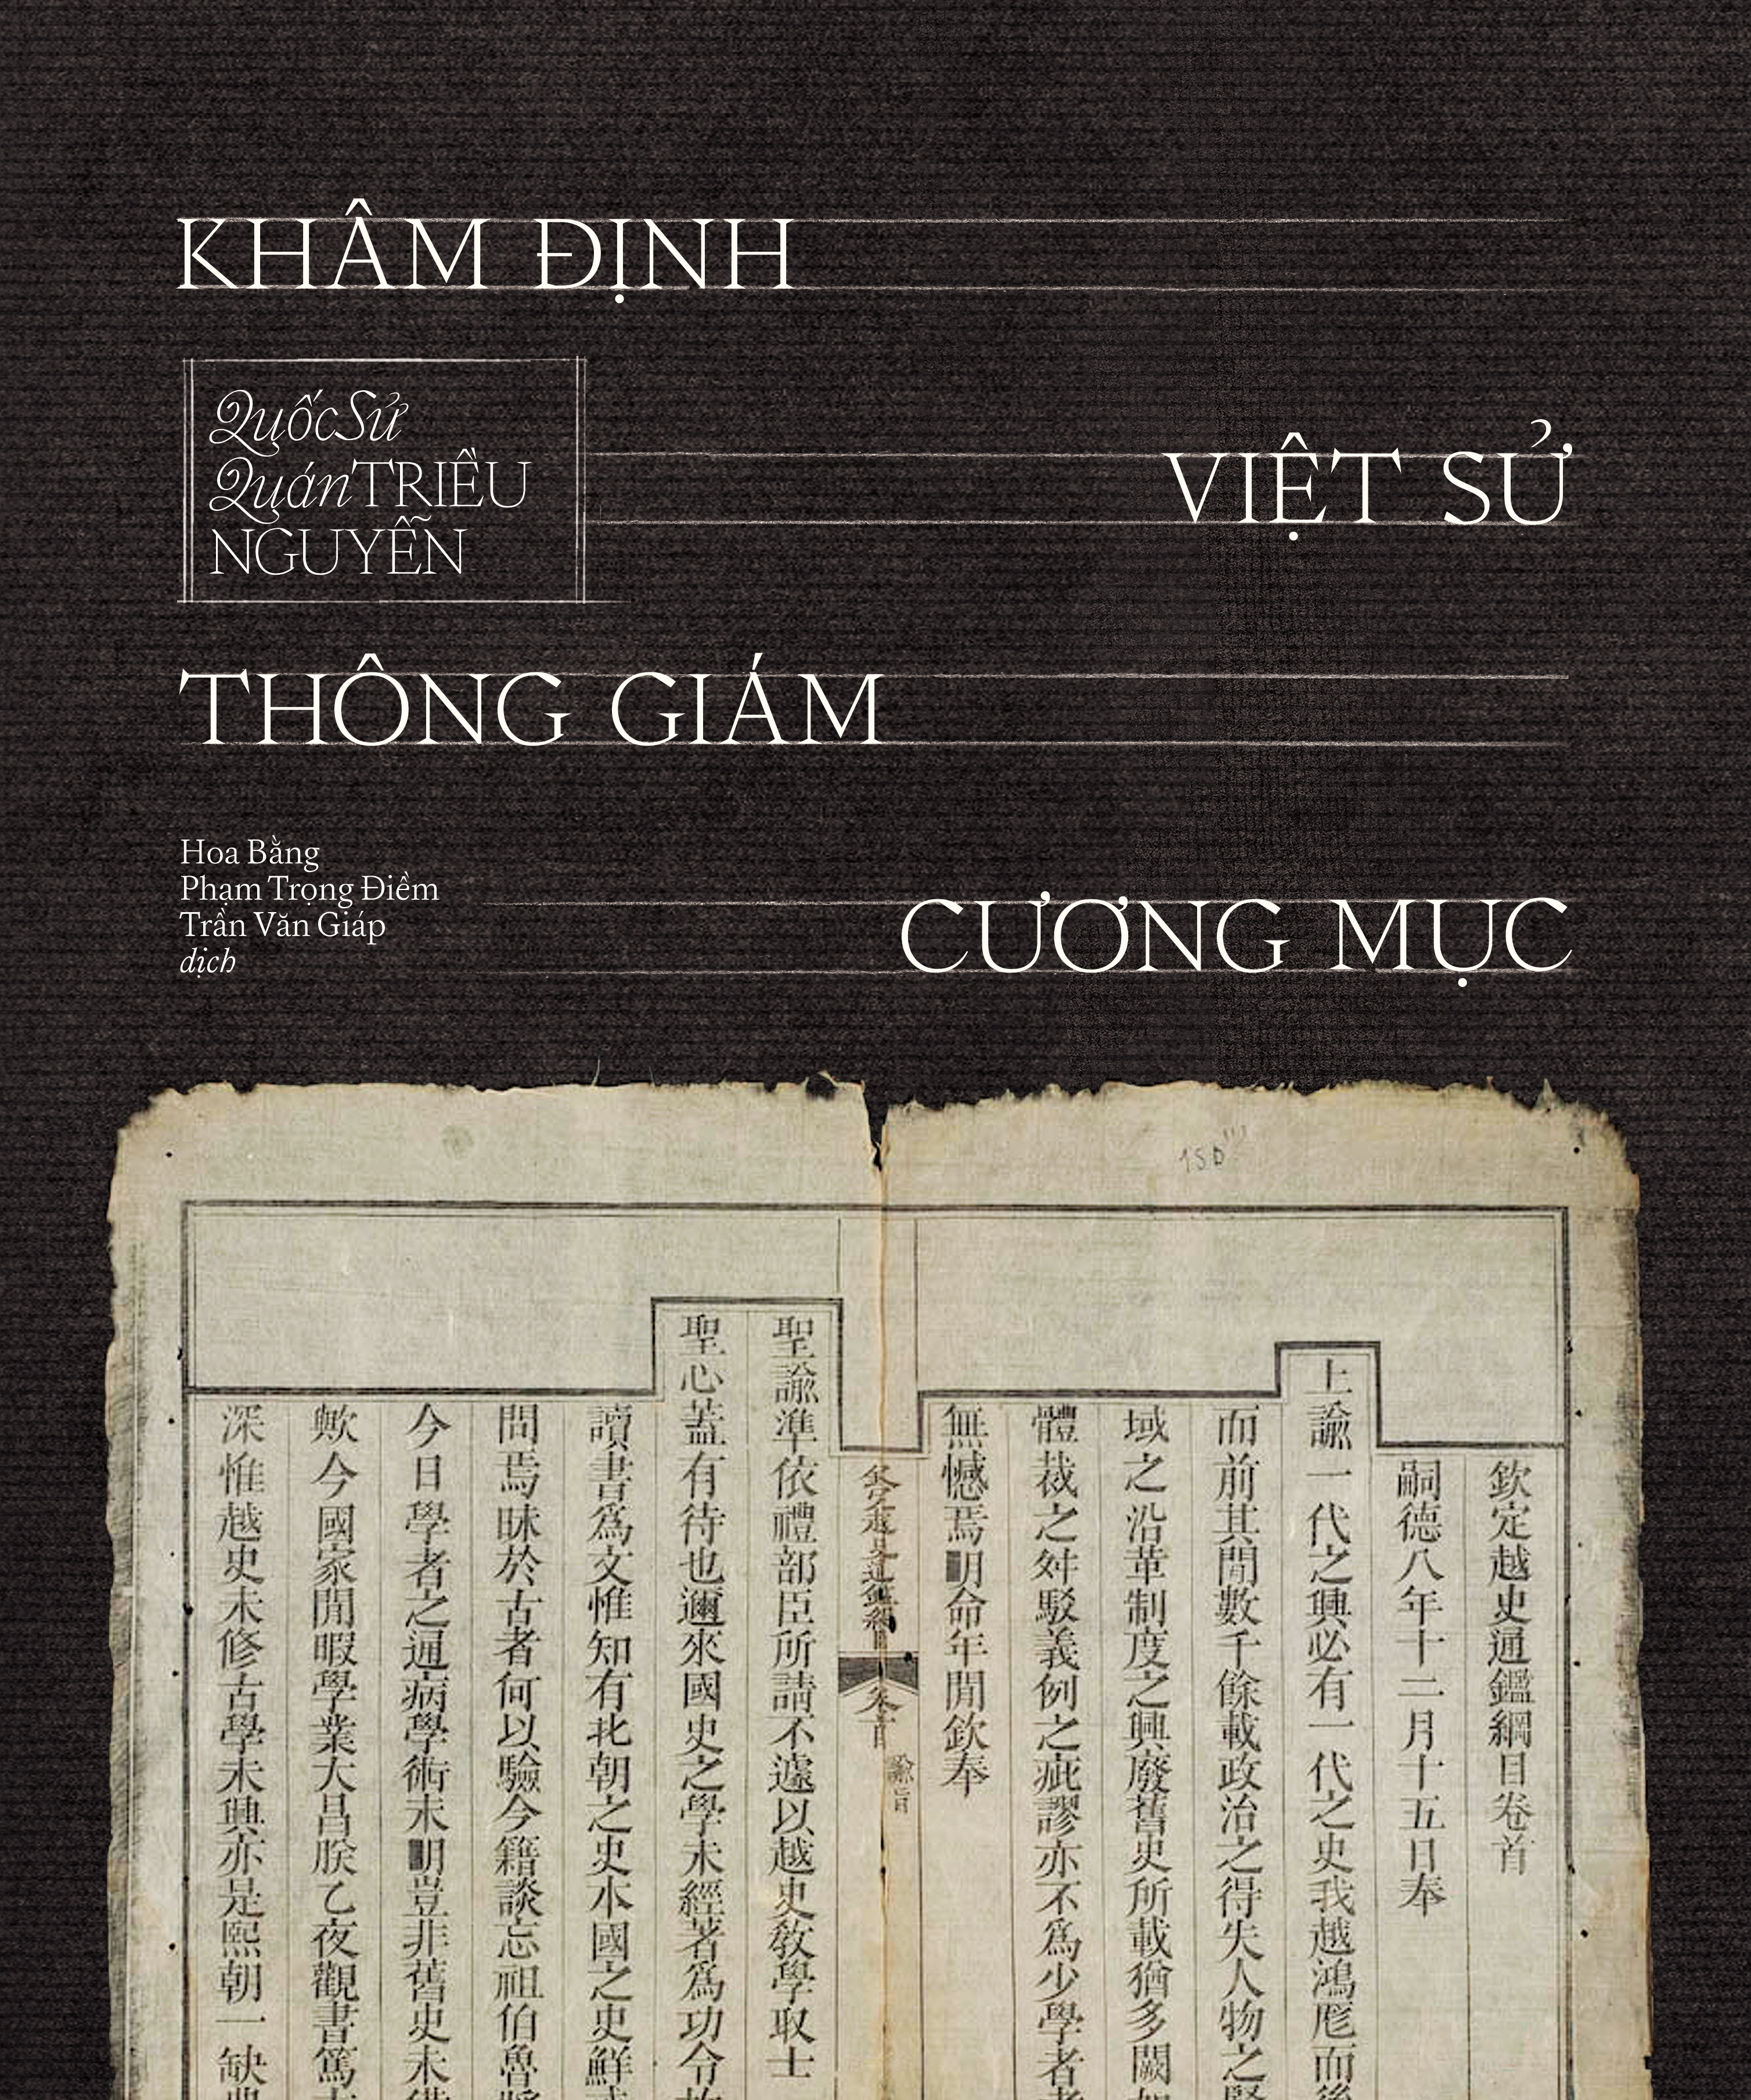 KHÂM ĐỊNH
Quốc Sử
Quán TRIỀU
NGUYỄN
VIỆT SỬ
THÔNG GIÁM
Hoa Bằng
Phạm Trọng Điềm
Trần Văn Giáp
dịch
CƯƠNG MỤC
欽定越史通鑑綱目卷首
嗣德八年十二月十五日奉
上諭一代之興必有一代之史我越鴻厖而後
而前其間數千餘載政治之得失人物之賢
域之沿革制度之興廢舊史所載猶多闕如
體裁之舛駁義例之疵謬亦不爲少學者
無憾焉明命年間欽奉
欽定越史通鑑綱目
卷首
諭旨
聖諭準依禮部臣所請不遽以越史敎學取士
聖心蓋有待也邇來國史之學未經著爲功令故
讀書爲文惟知有北朝之史本國之史鮮或
問焉昧於古者何以驗今籍談忘祖伯魯將
今日學者之通病學術未明豈非舊史未備
歟今國家閒暇學業大昌朕乙夜觀書篤志
深惟越史未修古學未興亦是熙朝一缺典